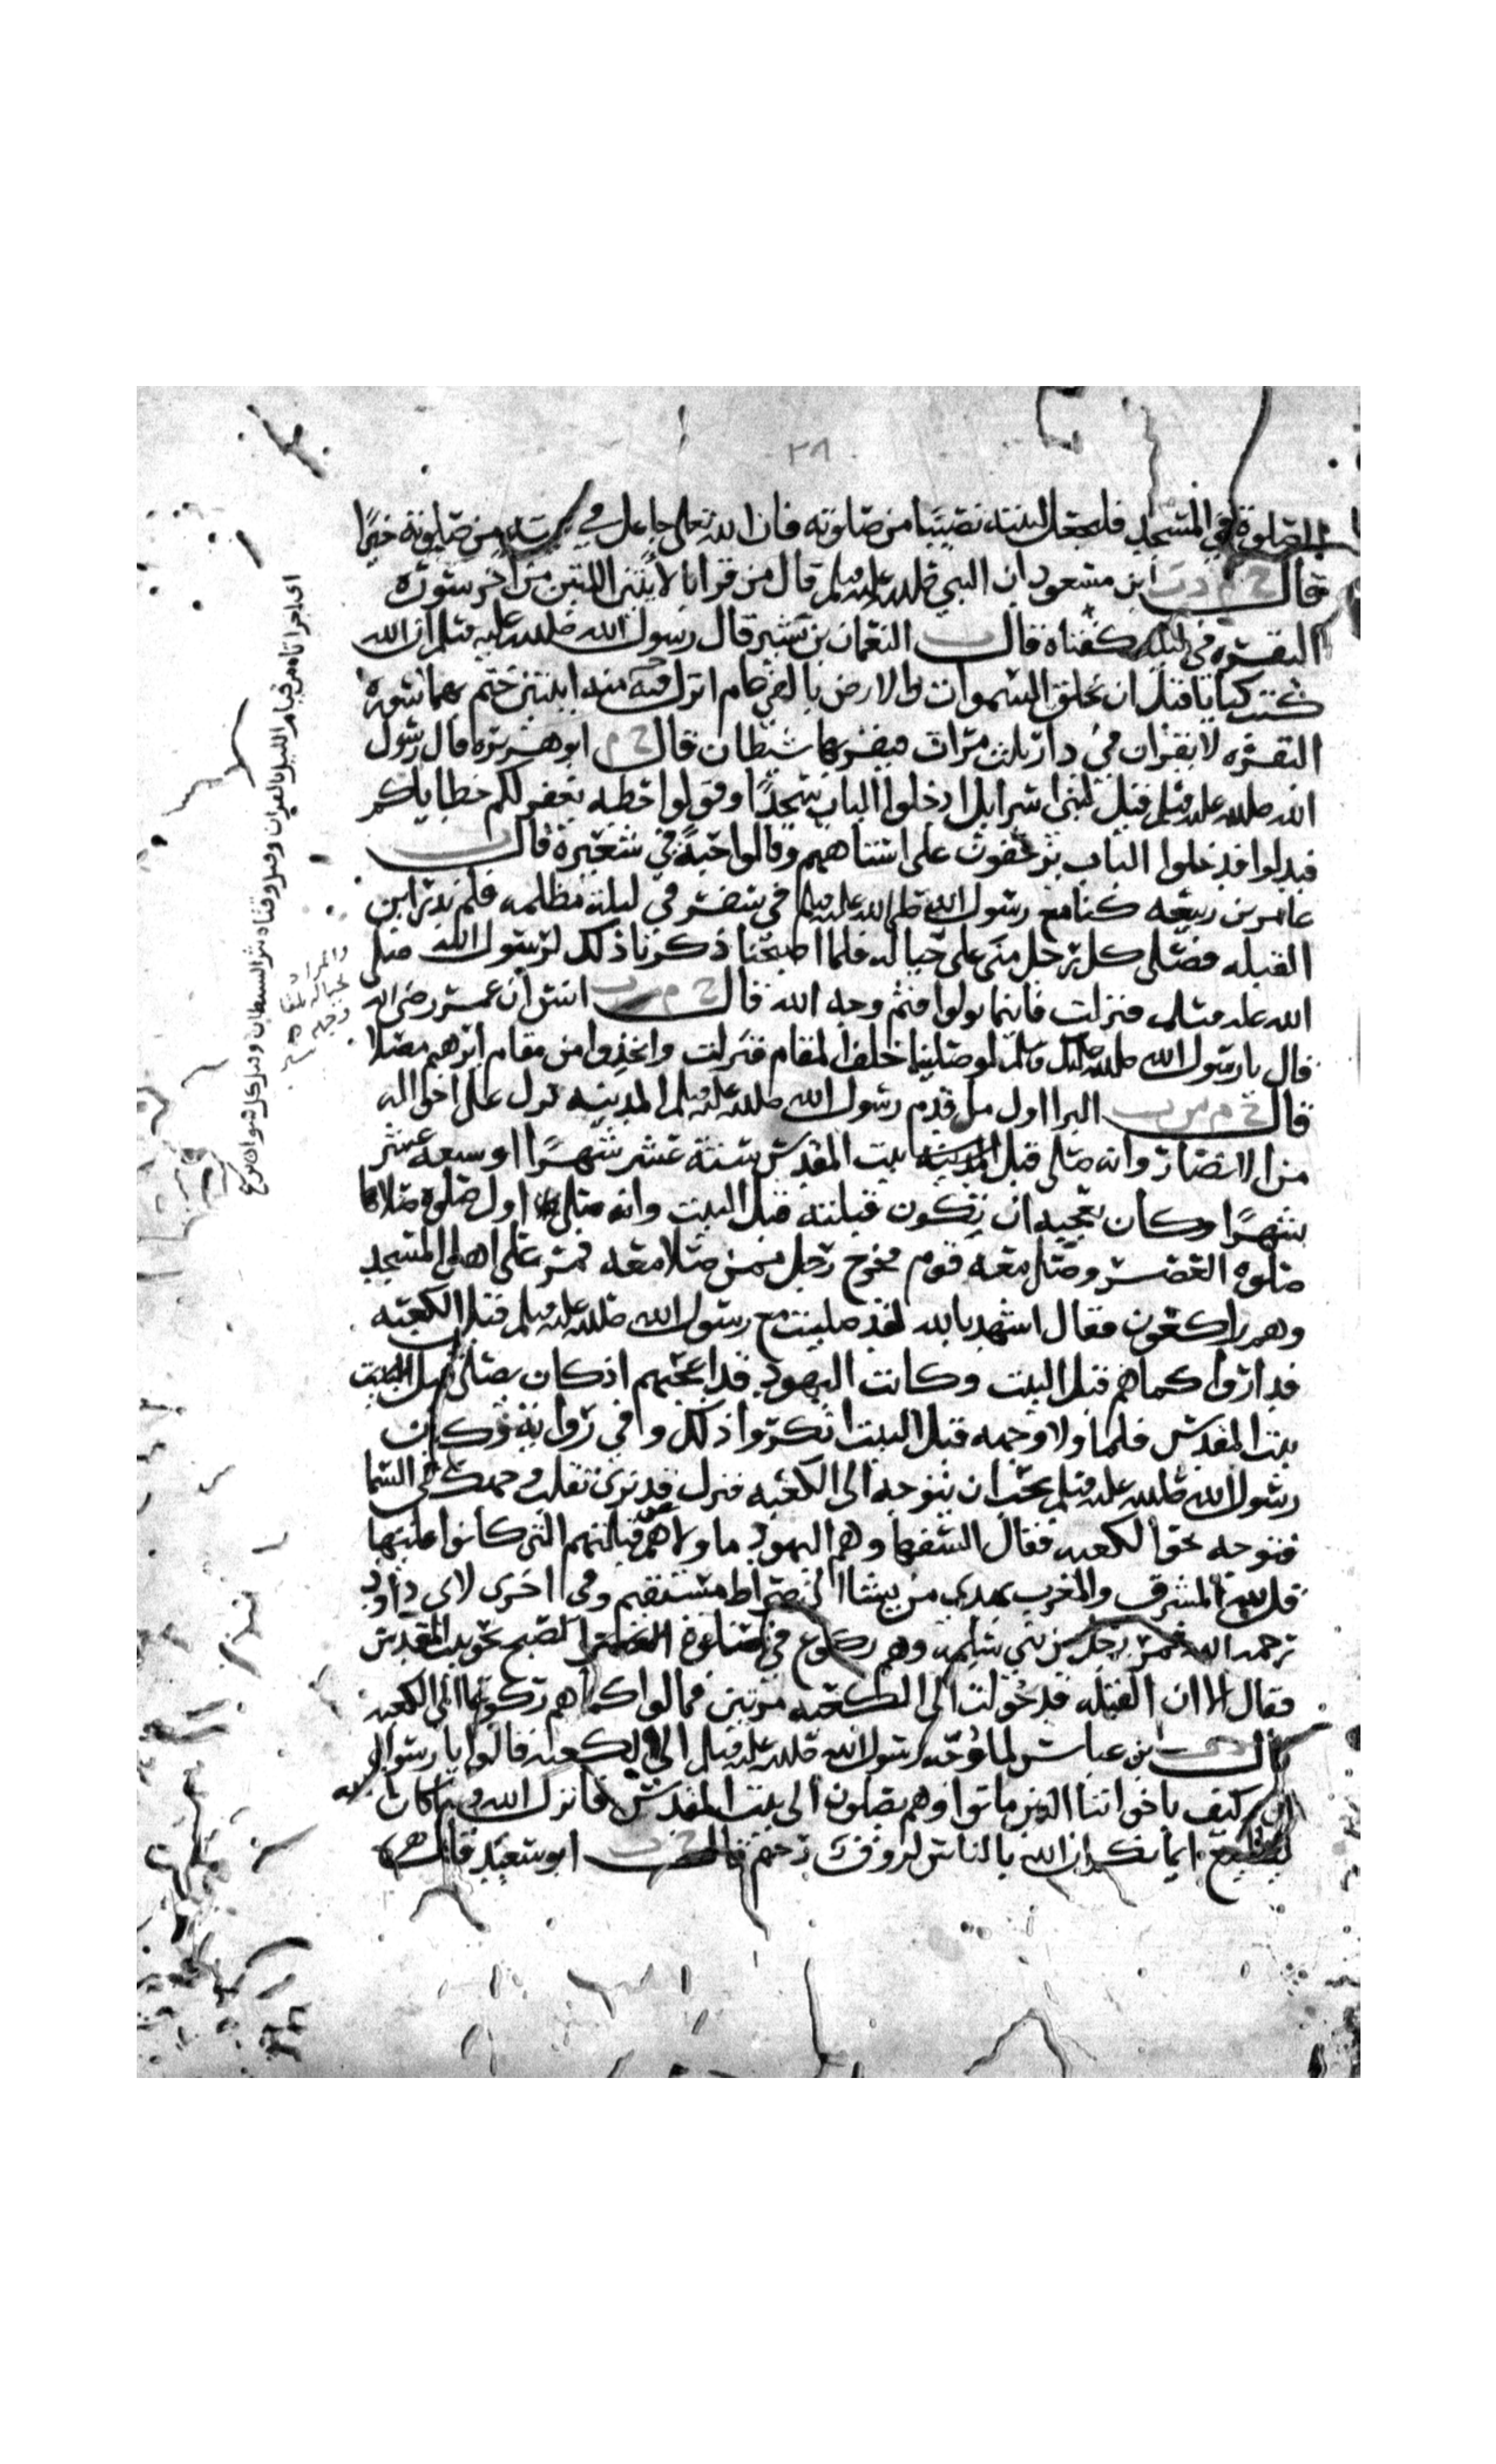 ٢٨
الصلوة في المسجد فليجعل لبيته نصيبا من صلوته فان الله تعالى جاعل في بيته من صلوته خيرا
قال خ م د ت ابن مسعود ان النبي صلى الله عليه وسلم قال من قرا بالايتين من اخر سورة
البقرة في ليلة كفتاه قال ت النعمان بن بشير قال رسول الله صلى الله عليه وسلم ان الله
كتب كتابا قبل ان يخلق السموات والارض بالفي عام انزل فيه منه ايتين ختم بهما سورة
البقرة لا يقران في دار ثلث مرات فيقربها شيطان قال خ م ابو هريرة قال رسول
الله صلى الله عليه وسلم قيل لبني اسرايل ادخلوا الباب سجدا وقولوا حطه يغفر لكم خطاياكم
فبدلوا فدخلوا الباب يزحفون على استاههم وقالوا حبة في شعيرة قال ت
عامر بن ربيعه كنا مع رسول الله صلى الله عليه وسلم في سفر في ليلة مظلمه فلم ندر اين
القبله فصلى كل رجل منا على حياله فلما اصبحنا ذكرنا ذلك لرسول الله صلى
الله عليه وسلم فنزلت فاينما تولوا فثم وجه الله قال خ م ت انس ان عمر رضي الله
قال يا رسول الله لو صلينا خلف المقام فنزلت واتخذوا من مقام ابرهيم مصلا
قال خ م س ت البرا اول ما قدم رسول الله صلى الله عليه وسلم المدينه نزل على اخواله
من الانصار وانه صلى قبل بيت المقدس ستة عشر شهرا او سبعه عشر
شهرا وكان يعجبه ان تكون قبلته قبل البيت وانه صلى اول صلوة صلاها
صلوه العصر وصلى معه قوم فخرج رجل ممن صلا معه فمر على اهل المسجد
وهم راكعون فقال اشهد بالله لقد صليت مع رسول الله صلى الله عليه وسلم قبل الكعبه
فداروا كما هم قبل البيت وكانت اليهود قد اعجبهم اذ كان يصلي قبل
بيت المقدس فلما ولا وجهه قبل البيت انكروا ذلك وفي رواية وكان
رسول الله صلى الله عليه وسلم يحب ان يتوجه الى الكعبه فنزل قد نرى تقلب وجهك في السما
فتوجه نحو الكعبه فقال السفها وهم اليهود ما ولاهم عن قبلتهم التي كانوا عليها
قل لله المشرق والمغرب يهدي من يشا الى صراط مستقيم وفي اخرى لابي داود
رحمه الله فمر رجل من بني سلمه وهم ركوع في صلوة الصبح نحو بيت المقدس
فقال الا ان القبله قد حولت الى الكعبه مرتين فمالوا كما هم ركوعا الى الكعبه
قال د ت بن عباس لما وجه رسول الله صلى الله عليه وسلم الى الكعبه قالوا يا رسول
الله كيف باخواننا الذين ماتوا وهم يصلون الى بيت المقدس فانزل الله وما كان الله
ليضيع ايمانكم ان الله بالناس لروف رحيم قال خ ت ابو سعيد قال
اي اجزاتاه من قيام الليل بالقران وقيل وقتاه شر الشيطان وقيل كل سو